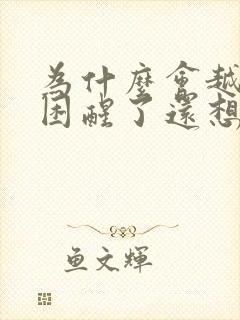 為什麼會越
困醒了還想
鱼文輝